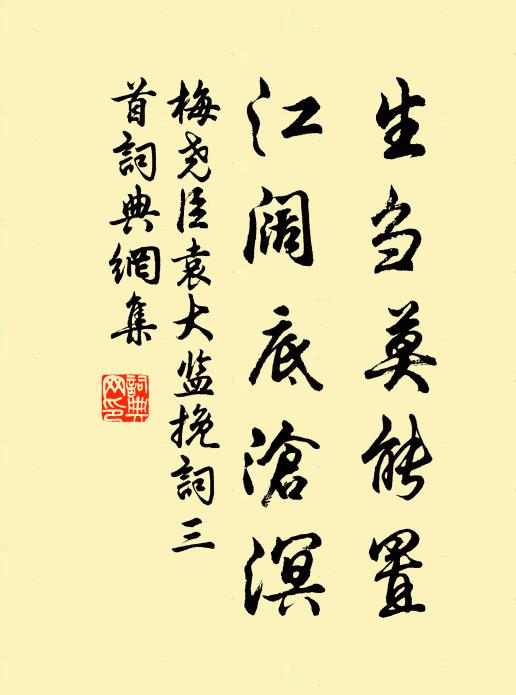 生刍莫能置
江阔底沧溟
梅尧臣袁大监挽词三
首词典網集
詞典
网印